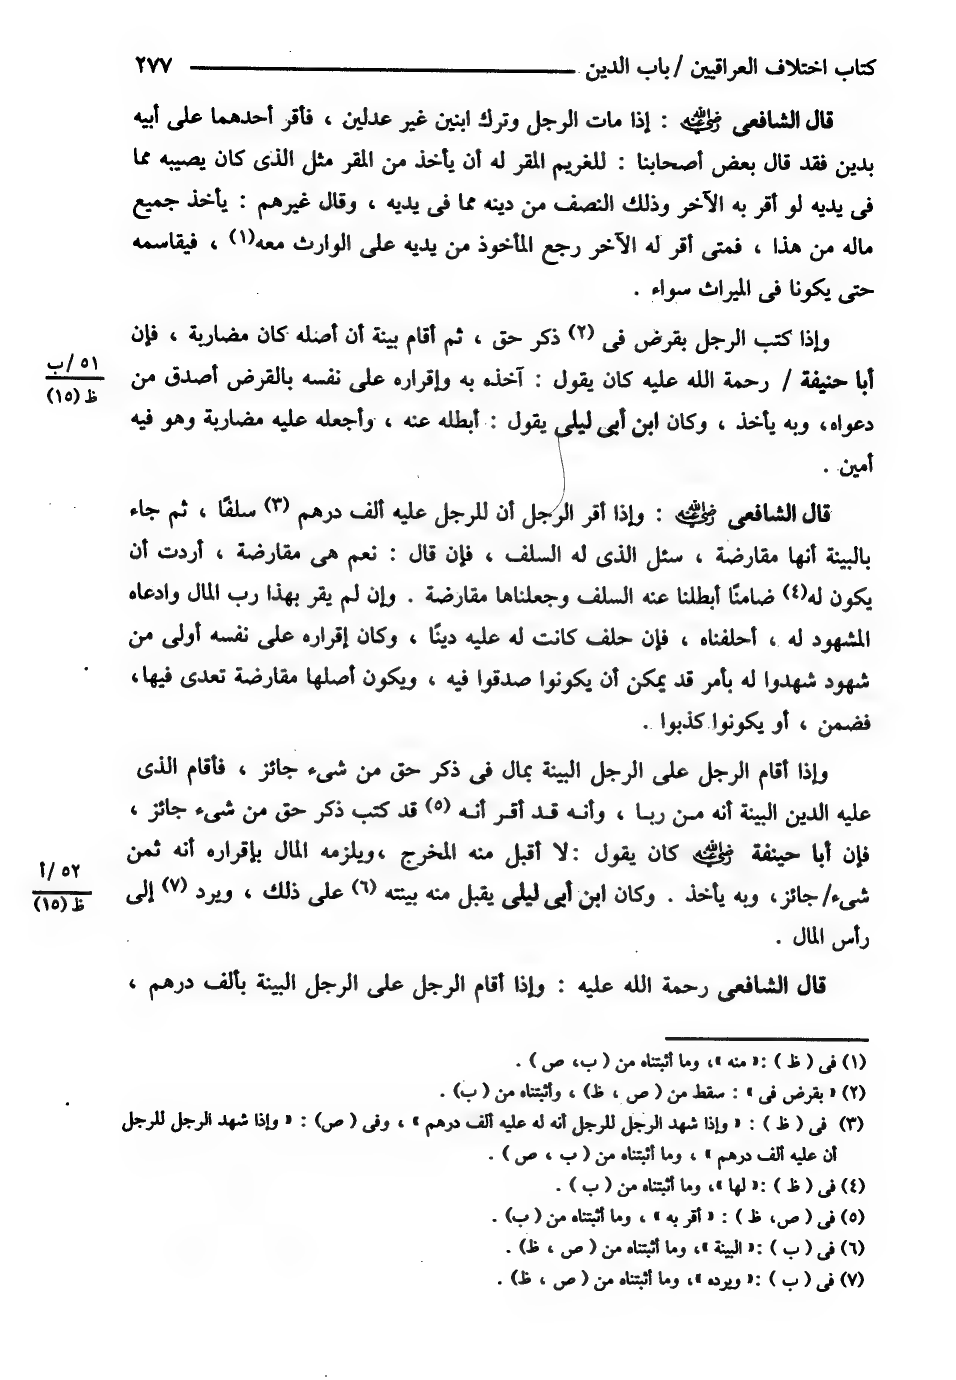 كتاب اختلاف العراقيين / باب الدين ٢٧٧
قال الشافعى رضي الله عنه : إذا مات الرجل وترك ابنين غير عدلين ، فأقر أحدهما على أبيه
بدين فقد قال بعض أصحابنا : للغريم المقر له أن يأخذ من المقر مثل الذى كان يصيبه مما
فى يديه لو أقر به الآخر وذلك النصف من دينه مما فى يديه ، وقال غيرهم : يأخذ جميع
ماله من هذا ، فمتى أقر له الآخر رجع المأخوذ من يديه على الوارث معه(١) ، فيقاسمه
حتى يكونا فى الميراث سواء .
وإذا كتب الرجل بقرض فى (٢) ذكر حق ، ثم أقام بينة أن أصله كان مضاربة ، فإن
أبا حنيفة / رحمة الله عليه كان يقول : آخذه به وإقراره على نفسه بالقرض أصدق من
٥١ /ب
ظ (١٥)
دعواه، وبه يأخذ ، وكان ابن أبى ليلى يقول : أبطله عنه ، وأجعله عليه مضاربة وهو فيه
أمين .
قال الشافعى رضي الله عنه : وإذا أقر الرجل أن للرجل عليه ألف درهم (٣) سلفًا ، ثم جاء
بالبينة أنها مقارضة ، سئل الذى له السلف ، فإن قال : نعم هى مقارضة ، أردت أن
يكون له(٤) ضامنًا أبطلنا عنه السلف وجعلناها مقارضة . وإن لم يقر بهذا رب المال وادعاه
المشهود له ، أحلفناه ، فإن حلف كانت له عليه دينًا ، وكان إقراره على نفسه أولى من
شهود شهدوا له بأمر قد يمكن أن يكونوا صدقوا فيه ، ويكون أصلها مقارضة تعدى فيها،
فضمن ، أو يكونوا كذبوا .
وإذا أقام الرجل على الرجل البينة بمال فى ذكر حق من شىء جائز ، فأقام الذى
عليه الدين البينة أنه مـن ربـا ، وأنـه قـد أقـر أنـه (٥) قد كتب ذكر حق من شىء جائز ،
فإن أبا حينفة رضي الله عنه كان يقول :لا أقبل منه المخرج ،ويلزمه المال بإقراره أنه ثمن
٥٢ /أ
ظ (١٥)
شىء/جائز، وبه يأخذ . وكان ابن أبى ليلى يقبل منه بينته (٦) على ذلك ، ويرد (٧) إلى
رأس المال .
قال الشافعى رحمة الله عليه : وإذا أقام الرجل على الرجل البينة بألف درهم ،
(١) فى ( ظ ) :« منه »، وما أثبتناه من ( ب، ص ) .
(٢) « بقرض فى » : سقط من ( ص ، ظ) ، وأثبتناه من ( ب) .
(٣) فى ( ظ ) : « وإذا شهد الرجل للرجل أنه له عليه ألف درهم » ، وفى ( ص) : « وإذا شهد الرجل للرجل
أن عليه ألف درهم » ، وما أثبتناه من ( ب ، ص ) .
(٤) فى ( ظ ) :« لها »، وما أثبتناه من ( ب ) .
(٥) فى ( ص، ظ ) : « أقر به » ، وما أثبتناه من ( ب) .
(٦) فى ( ب ) :« البينة »، وما أثبتناه من ( ص ، ظ) .
(٧) فى ( ب ) :« ويرده »، وما أثبتناه من ( ص ، ظ) .